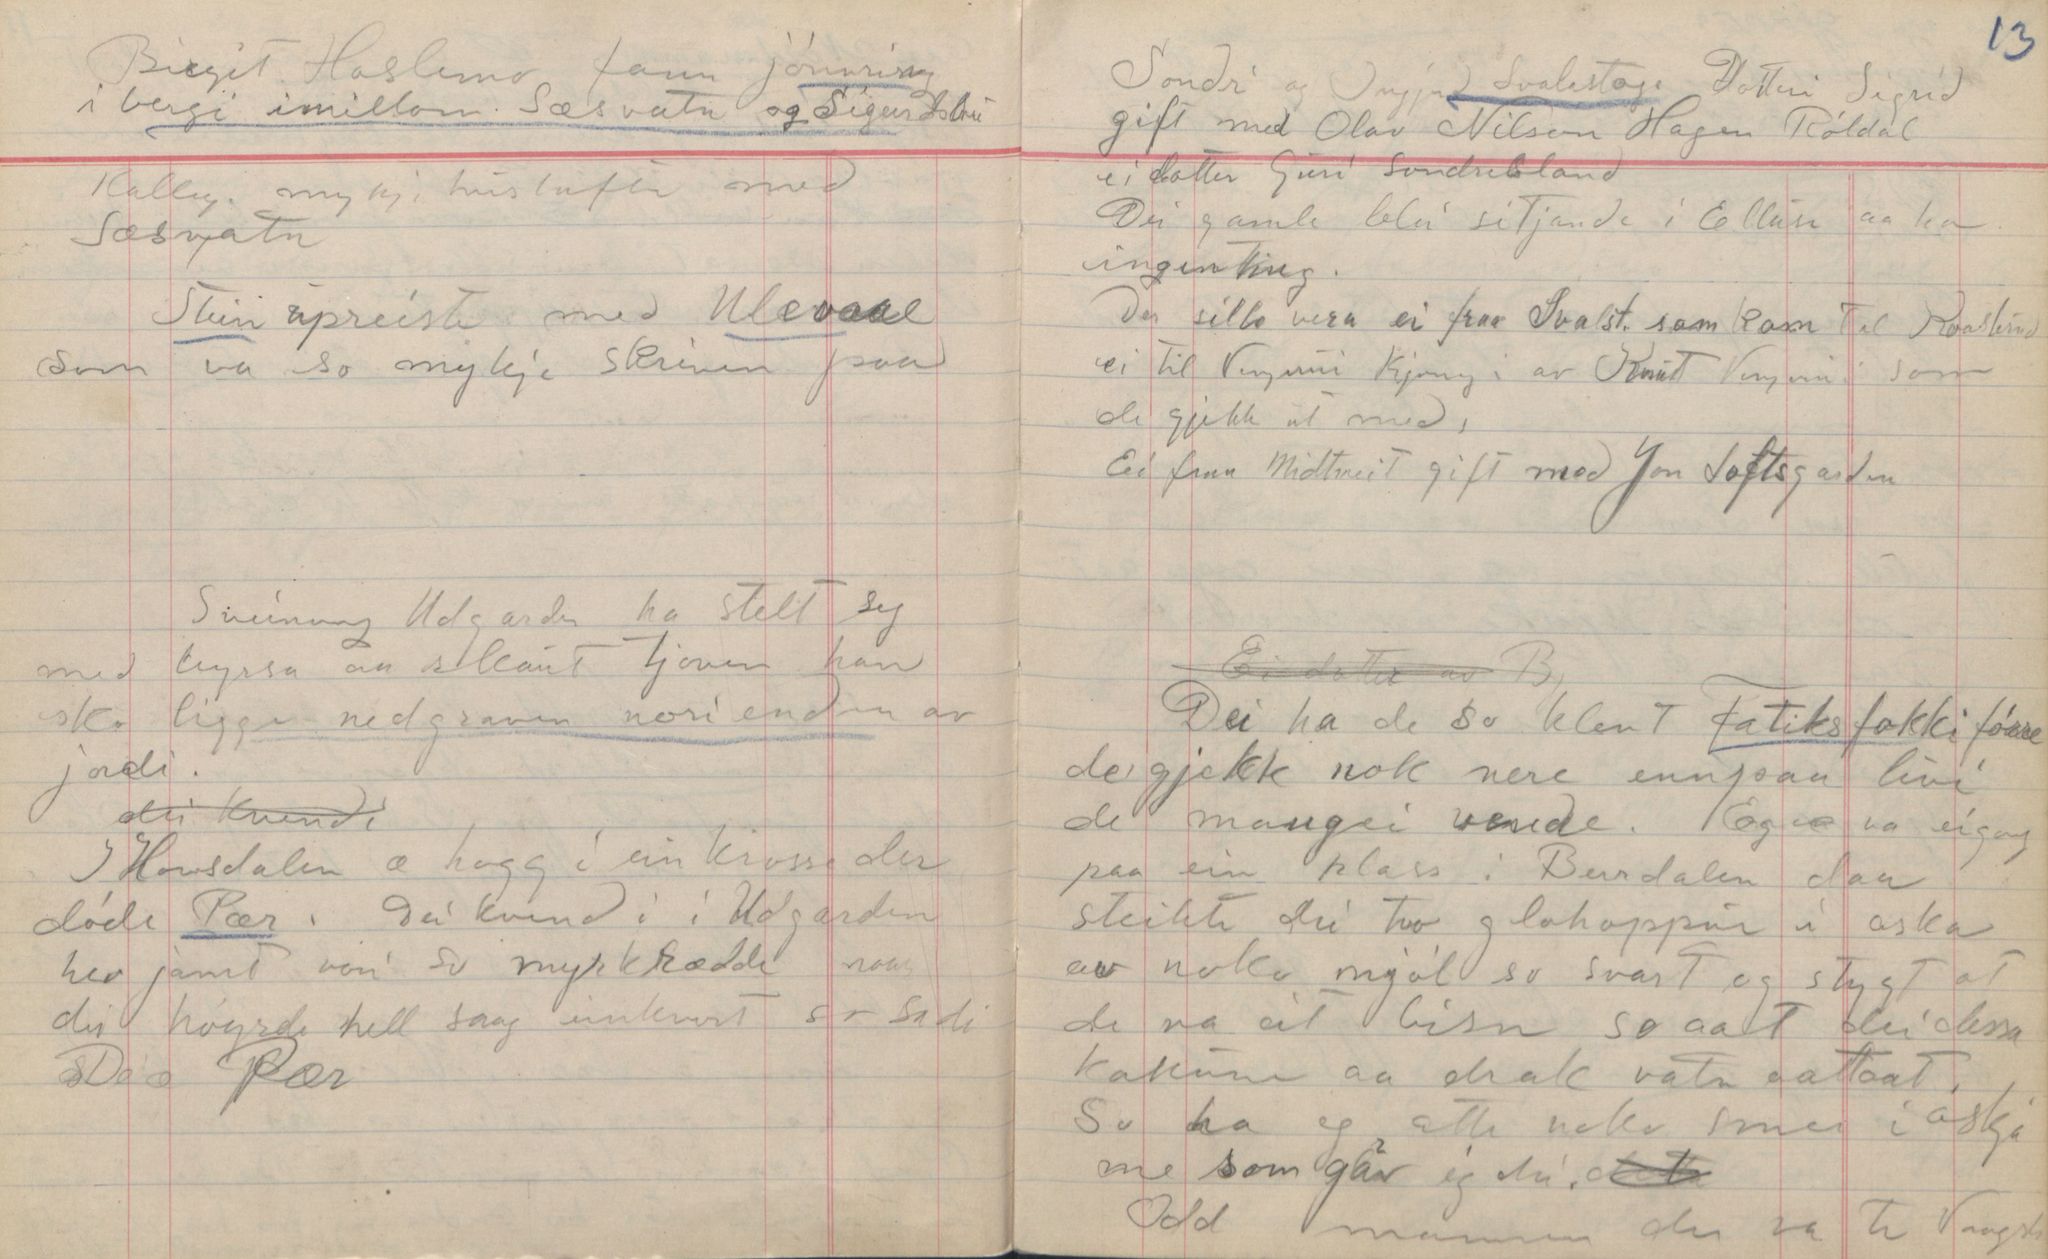 Birgit Haslemo fann jónnring
i bergi imillom Sæsvatn og Sigurdsbui
Kalleg. mykji hústufter med
Sæsvatn
Stein upreiste med Ulevaae
som va so mykje skriven paa
Sveinung Udgarden ha stellt seg
med byrsa aa skaut tjoven han
ska ligge nedgraven nori enden av
jordi.
dei kvendi
I Hovsdalen æ hogg i ein krosse der
döde Pær. Dei kvendi i Udgarden
hev jamt vori so myrkrædde naar
dei höyrde hell saag einkvert so sa dei
D'æ Pær
13
Sondri og Ingjerd Svalestoge Dotteri Sigrid
gift med Olav Nilson Hagen Röldal
ei dotter Guri Sondrebland
Dei gamle blei sitjande i Ellusi aa ha
ingenting.
Der sille vera ei fraa Svalst. som kom til
ei til Kjomg i av Knut som
de gjekk ut med,
Ei fraa Midtveit gift med Jon Loftsgarden
Ei dotter av B,
Dei ha de so klent Fatiksfokki fóare
de gjekk nok nere ennpaa livi
de maugei vende. Eg va eigong
paa ein plass i Burdalen daa
steikte dei tvo glohoppur i oska
av noko mjöl so svart og stygt at
de va eit bisn so aat dei dessa
kakune aa drak vatn aattaat.
So ha eg atte noko smer i askjå
me som gav eg dei.
Odd mannen der va te